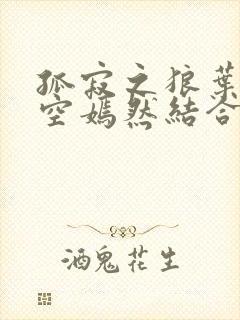 孤寂之狼葉
空嫣然結合
酒鬼花生